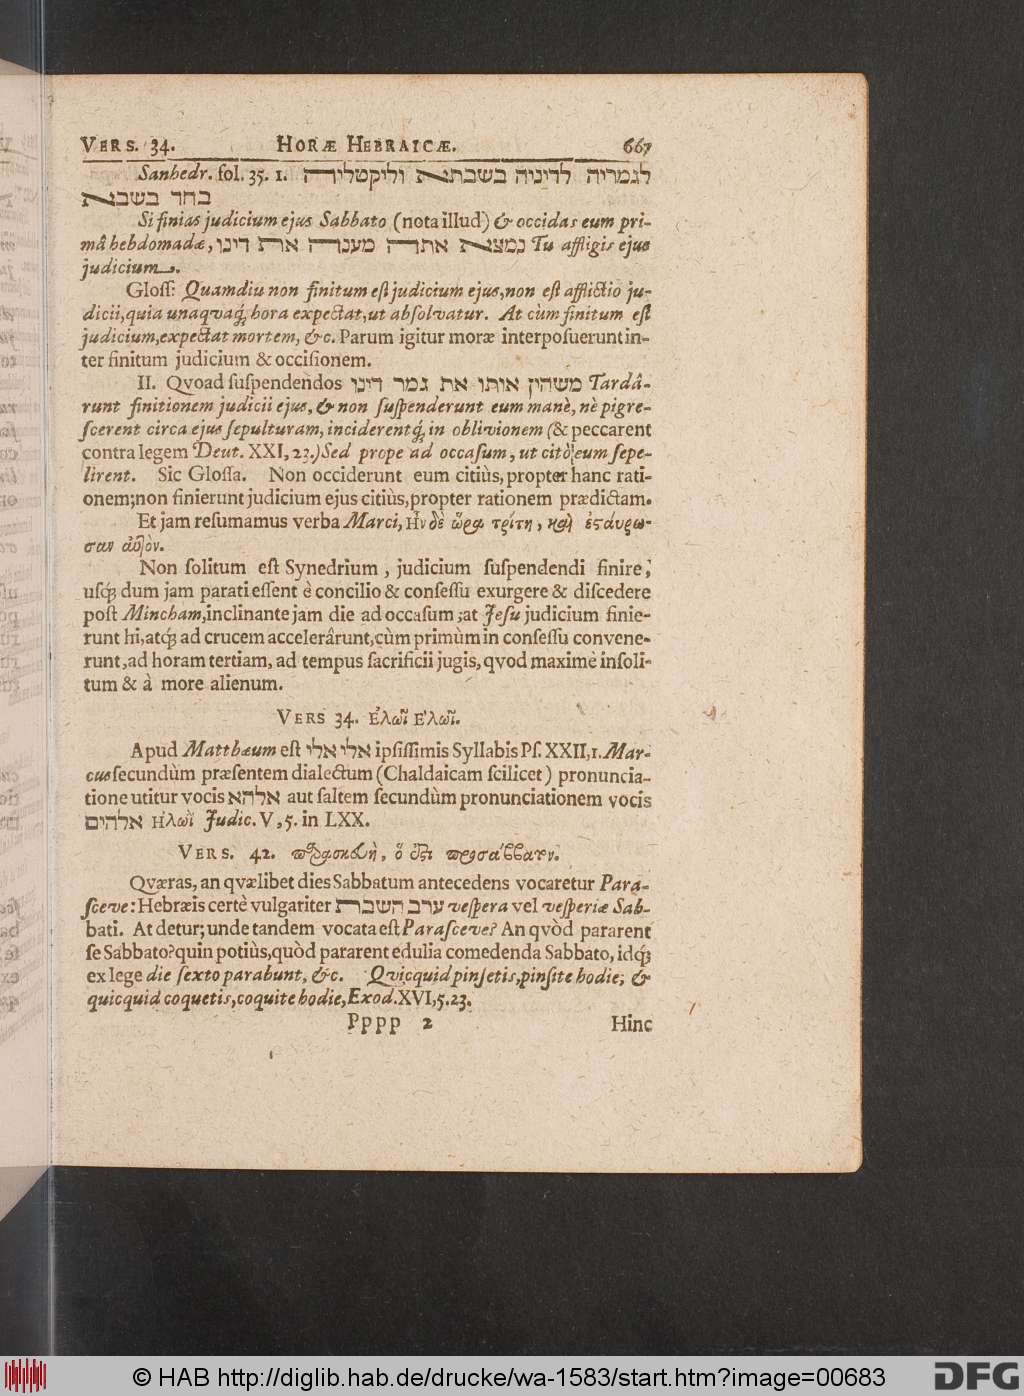 VERS. 34. HORÆ HEBRAICÆ. 667
Sanhedr. fol. 35. 1. לגמריה לדיניה בשבתא וליקטליה
בחד בשבא
Si finias judicium ejus Sabbato (nota illud) & occidas eum pri-
mâ hebdomadæ, נמצא אתה מענה את דינו Tu affligis ejus
judicium.
Gloss: Quamdiu non finitum est judicium ejus, non est afflictio ju-
dicii, quia unaqvaq; hora expectat, ut absolvatur. At cùm finitum est
judicium, expectat mortem, &c. Parum igitur moræ interposuerunt in-
ter finitum judicium & occisionem.
II. Qvoad suspendendos משהין אותו את גמר דינו Tardâ-
runt finitionem judicii ejus, & non suspenderunt eum manè, nè pigre-
scerent circa ejus sepulturam, inciderentq; in oblivionem (& peccarent
contra legem Deut. XXI, 23.) Sed prope ad occasum, ut citò eum sepe-
lirent. Sic Glossa. Non occiderunt eum citiùs, propter hanc rati-
onem; non finierunt judicium ejus citiùs, propter rationem prædictam.
Et jam resumamus verba Marci, Ην δὲ ὥρα τρίτη, καὶ ἐσταύρω-
σαν αὐτὸν.
Non solitum est Synedrium, judicium suspendendi finire,
usq; dum jam parati essent è concilio & consessu exurgere & discedere
post Mincham, inclinante jam die ad occasum; at Jesu judicium finie-
runt hi, atq; ad crucem accelerârunt, cùm primùm in consessu convene-
runt, ad horam tertiam, ad tempus sacrificii jugis, qvod maximè insoli-
tum & à more alienum.
VERS 34. Ἐλωῒ Ελωῒ.
Apud Matthæum est אלי אלי ipsissimis Syllabis Ps. XXII, 1. Mar-
cus secundùm præsentem dialectum (Chaldaicam scilicet) pronuncia-
tione utitur vocis אלהא aut saltem secundùm pronunciationem vocis
אלהים Ηλωῒ Judic. V, 5. in LXX.
VERS. 42. παρασκευὴ, ὅ ἐστι προσάββατον.
Qværas, an qvælibet dies Sabbatum antecedens vocaretur Para-
sceve: Hebræis certè vulgariter ערב השבת vespera vel vesperiæ Sab-
bati. At detur; unde tandem vocata est Parasceve? An qvòd pararent
se Sabbato? quin potiùs, quòd pararent edulia comedenda Sabbato, idq;
ex lege die sexto parabunt, &c. Qvicquid pinsetis, pinsite hodie; &
quicquid coquetis, coquite hodie, Exod. XVI, 5. 23.
Pppp 2 Hinc
© HAB http://diglib.hab.de/drucke/wa-1583/start.htm?image=00683 DFG